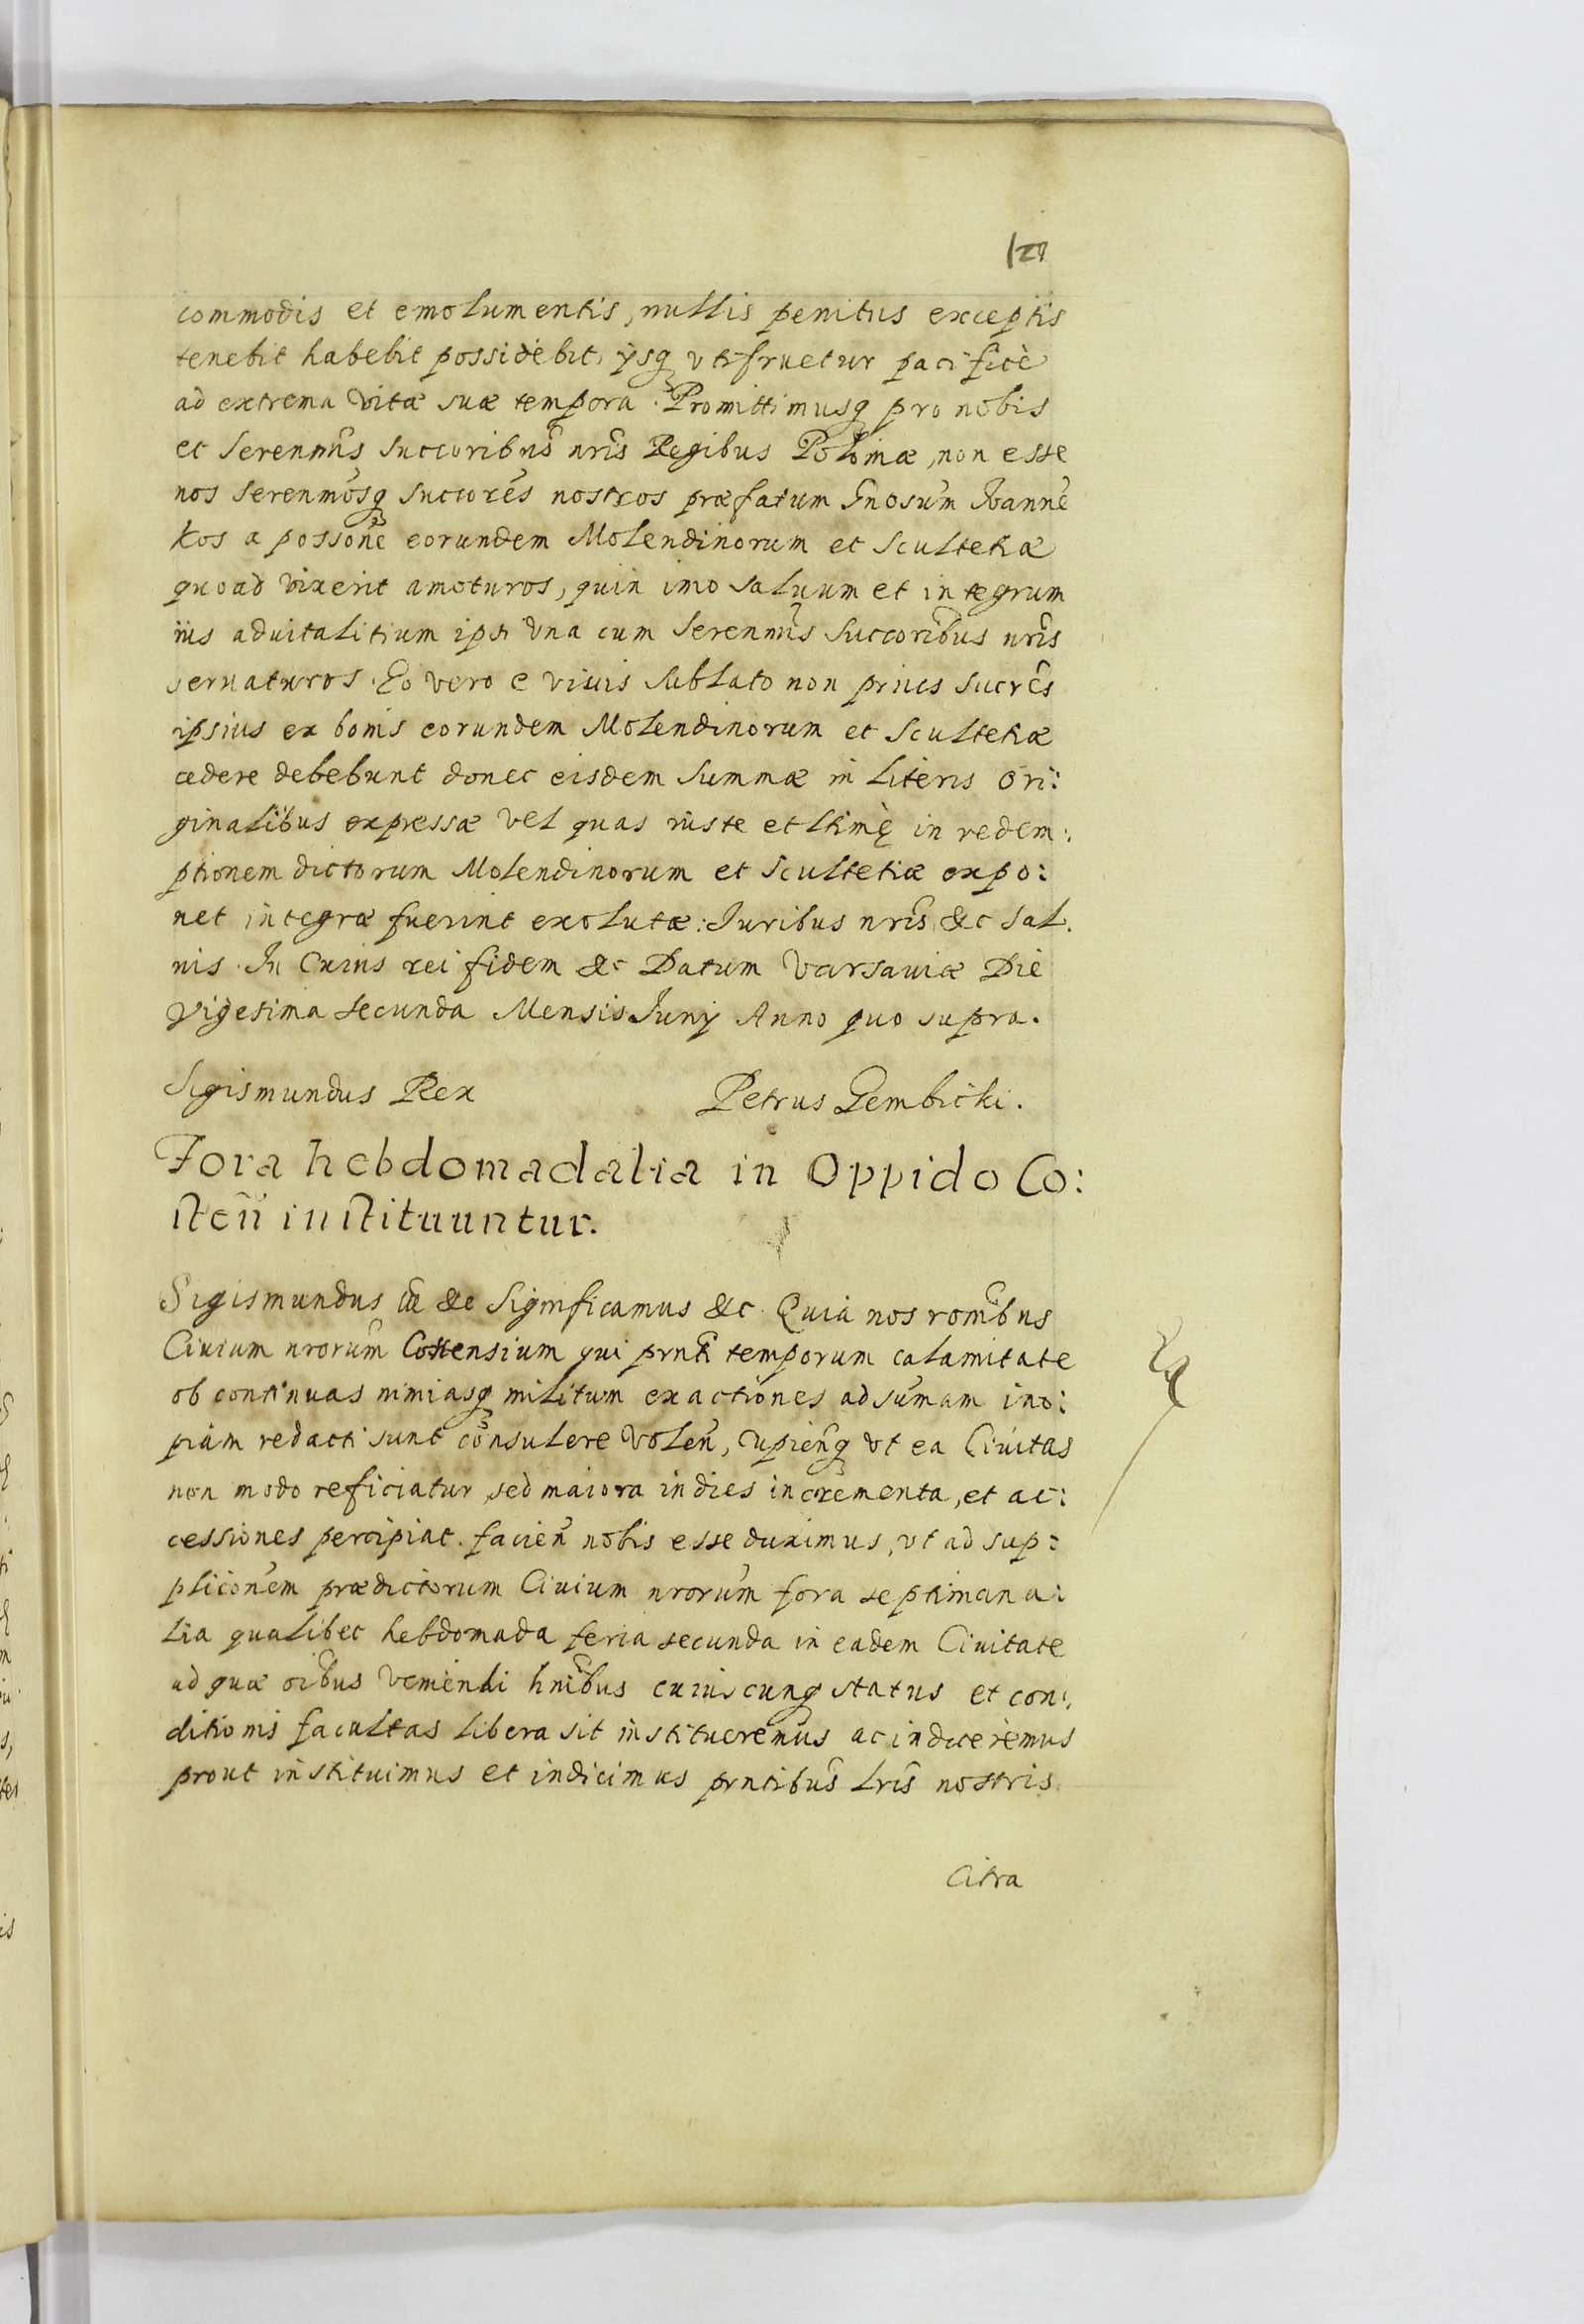 127
commodis et emolumentis, nullis penitus exceptis
tenebit habebit possidebit, ijsq3 vtifruetur pacificè
ad extrema vitæ suæ tempora. Promittimusq3 pro nobis
et Serenmis Succoribus nris Regibus Poloniæ, non esse
nos Serenmosq3 Succores nostros præfatum Gnosum Joanne
Kos a possone eorundem Molendinorum et Scultetiæ
quoad vixerit amoturos, quin imo saluum et integrum
ius aduitalitium ipsi vna cum Serenmis Succoribus nris
seruaturos. Eo vero e viuis sublato non prius sucres
ipsius ex bonis eorundem Molendinorum et Scultetiæ
cedere debebunt donec eisdem summæ in literis ori:
ginalibus expressæ vel quas iuste et ltimę in redem:
ptionem dictorum Molendinorum et Scultetiæ expo:
net integræ fuerint exolutæ: Juribus nris &c Sal.
uis. In Cuius rei fidem &c Datum Varsauiæ Die
vigesima secunda Mensis Junij Anno quo supra.
Sigismundus Rex Petrus Gembicki.
Fora hebdomadalia in Oppido Co:
sten instituuntur.
Sigismundus &c Significamus &c. Quia nos ronibus
Ciuium nrorum Costensium qui prnti temporum calamitate
ob continuas nimiasq3 militum exactiones ad sumam ino:
piam redacti sunt consulere volen, cupienq3 vt ea Ciuitas
non modo reficiatur, sed maiora indies incrementa, et ac:
cessiones percipiat. facien nobis esse duximus, vt ad sup:
pliconem prædictorum Ciuium nrorum fora septimana:
lia qualibet hebdomada feria secunda in eadem Ciuitate
ad quæ oibus veniendi hnibus cuiuscunq3 status et con:
ditionis facultas libera sit institueremus ac indiceremus
prout instituimus et indicimus prntibus lris nostris
Citra